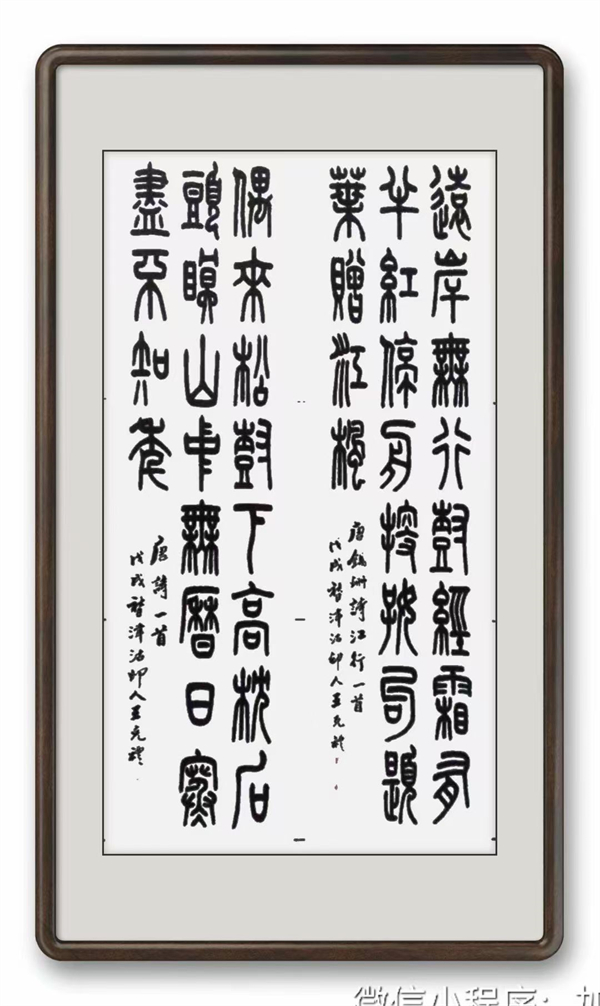 遠岸無行樹經霜有
半紅停舟搜好句題
葉贈江楓
唐錢珝詩江行一首
戊戌津沽印人王克
偶來松樹下高枕石
頭眠山中無曆日寒
盡不知年
唐詩一首
戊戌津沽印人王克
微信小程序: